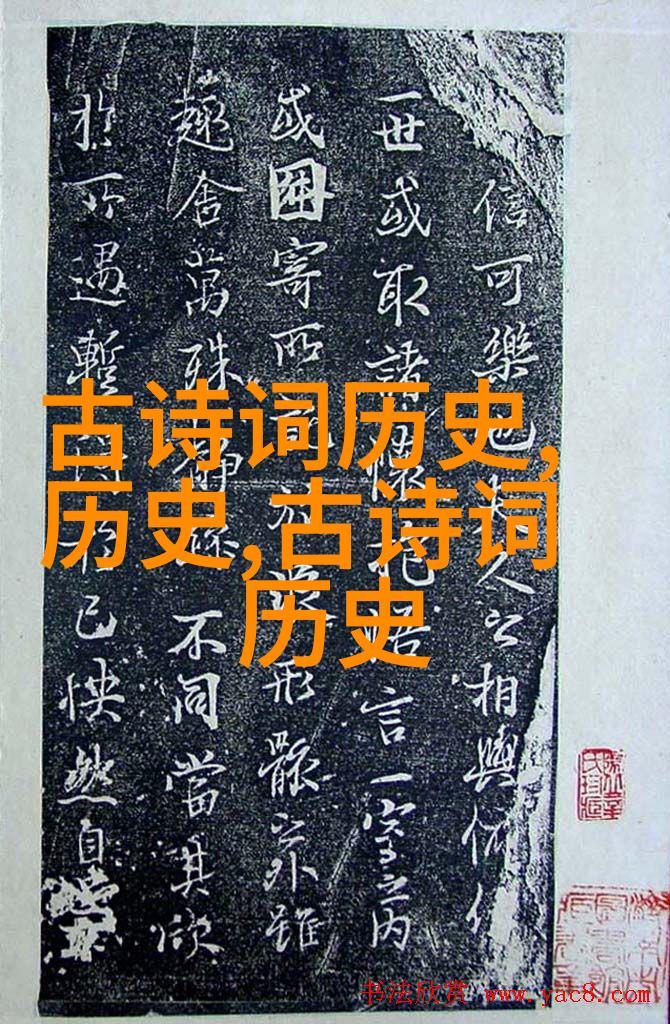 古诗词历史,
历史,古诗词
历史
信可樂也夫人之相與俯仰
一世或取諸懷抱悟言一室之內
或因寄所託放浪形骸之外雖
趣舍萬殊靜躁不同當其欣
於所遇暫得於己快然自
书法欣赏 www.yac8.com